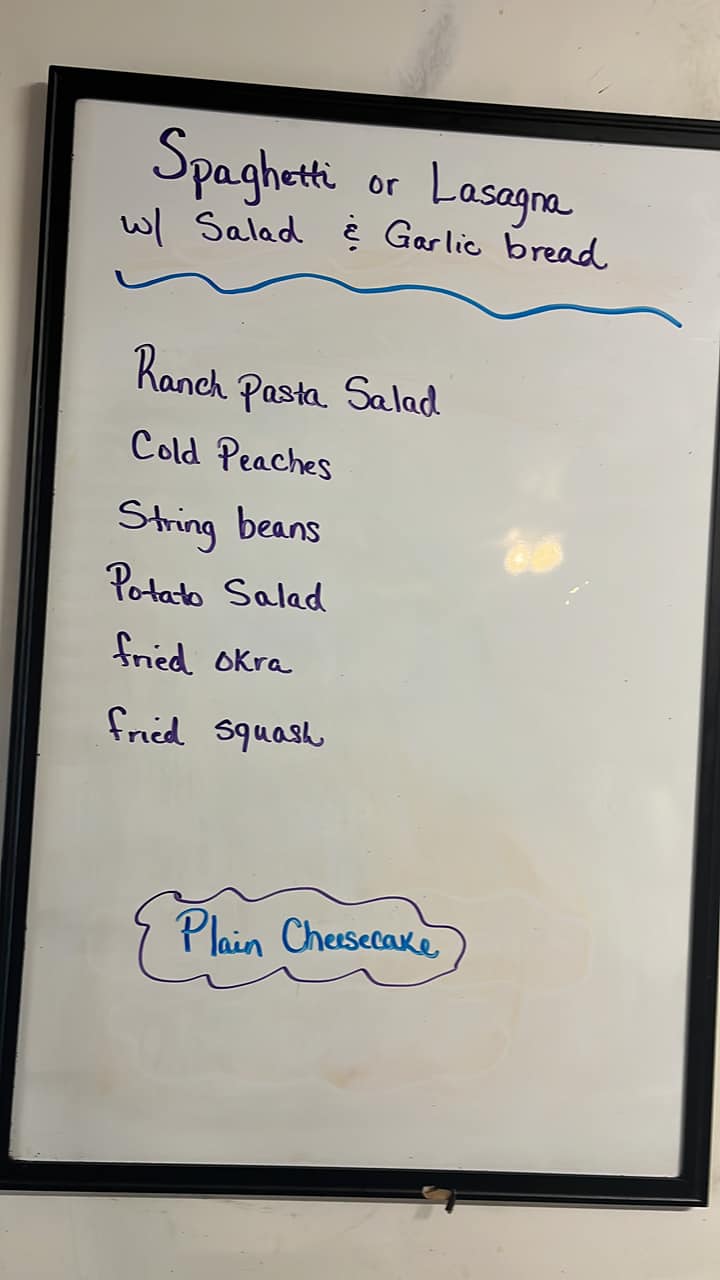 Spaghetti or Lasagna
w/ Salad & Garlic bread
Ranch Pasta Salad
Cold Peaches
String beans
Potato Salad
fried okra
fried squash
Plain Cheesecake